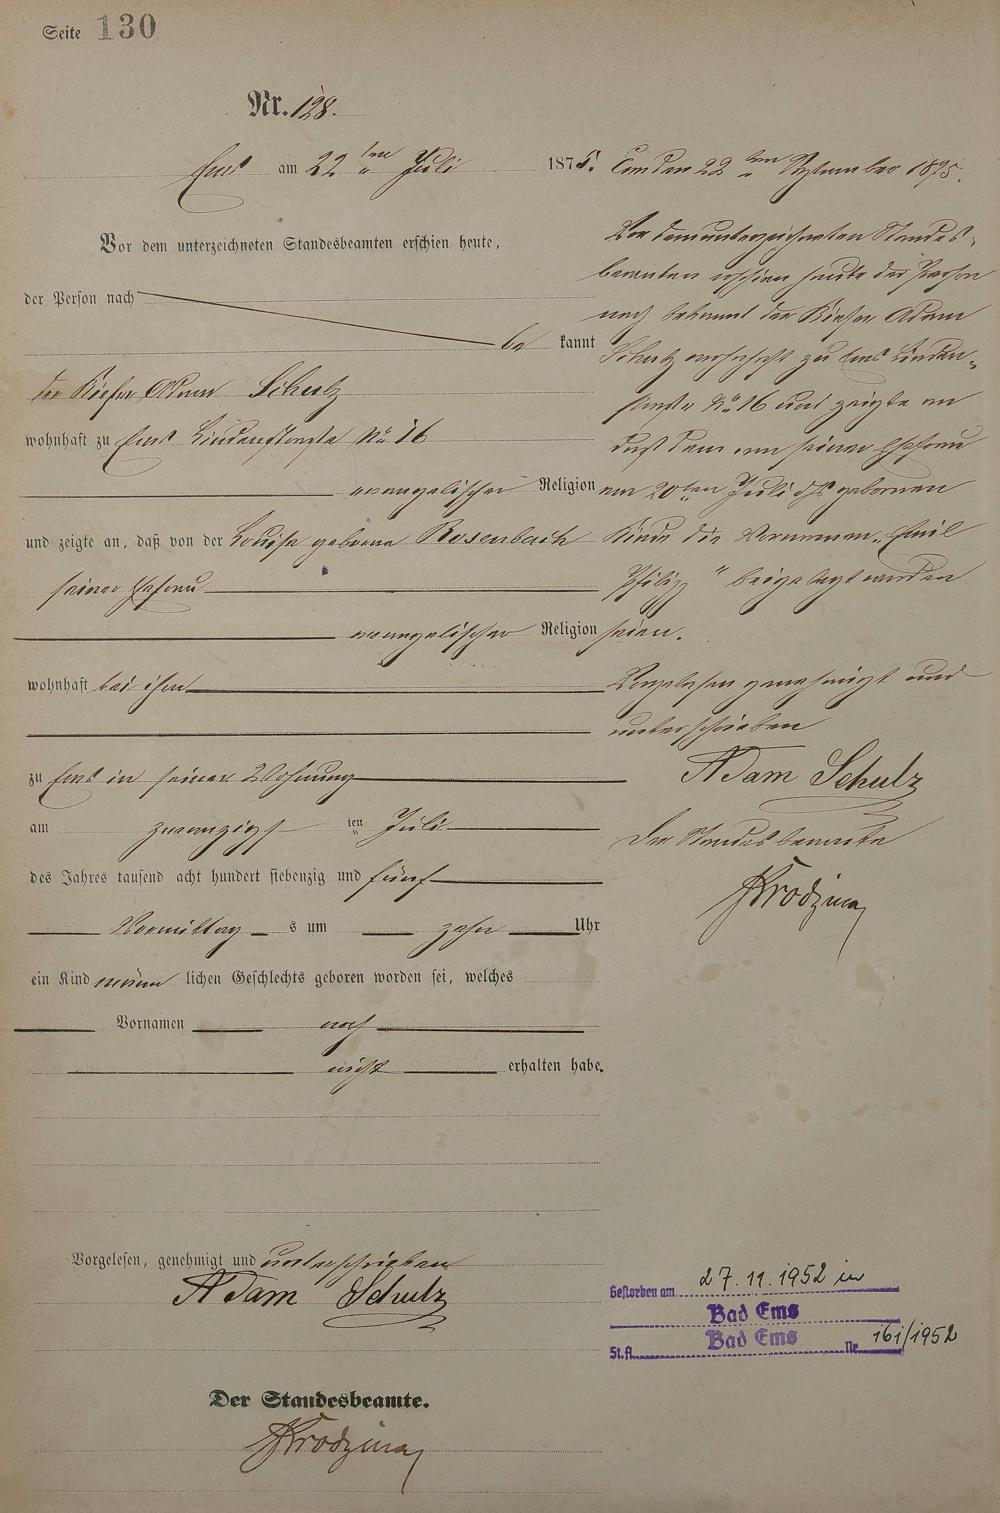 Seite 130
Nr. 128.
Ems am 22 ten Juli 1875.
Vor dem unterzeichneten Standesbeamten erschien heute,
der Person nach
be kannt
der Küfer Adam Schulz
wohnhaft zu Ems Lindenstraße No 16
evangelischer Religion
und zeigte an, daß von der Louise geborene Rosenbach
seiner Ehefrau
evangelischer Religion
wohnhaft bei ihm
zu Ems in seiner Wohnung
am zwanzigs ten Juli
des Jahres tausend acht hundert siebenzig und fünf
Vormittag s um zehn Uhr
ein Kind männ lichen Geschlechts geboren worden sei, welches
Vornamen noch
nicht erhalten habe.
Vorgelesen, genehmigt und unterschrieben
Adam Schulz
Der Standesbeamte.
Krodzina
Ems den 22 ten September 1875.
Vor dem unterzeichneten Standes-
beamten erschien heute der Person
nach bekannt der Küfer Adam
Schulz wohnhaft zu Ems Linden-
straße No 16 und zeigte an
daß dem von seiner Ehefrau
am 20ten Juli ds geborenen
Kinde die Vornamen „Emil
Philipp" beigelegt worden
seien.
Vorgelesen genehmigt und
unterschrieben
Adam Schulz
Der Standesbeamte
Krodzina
Gestorben am 27.11.1952 in
Bad Ems
St.A. Bad Ems Nr. 161/1952